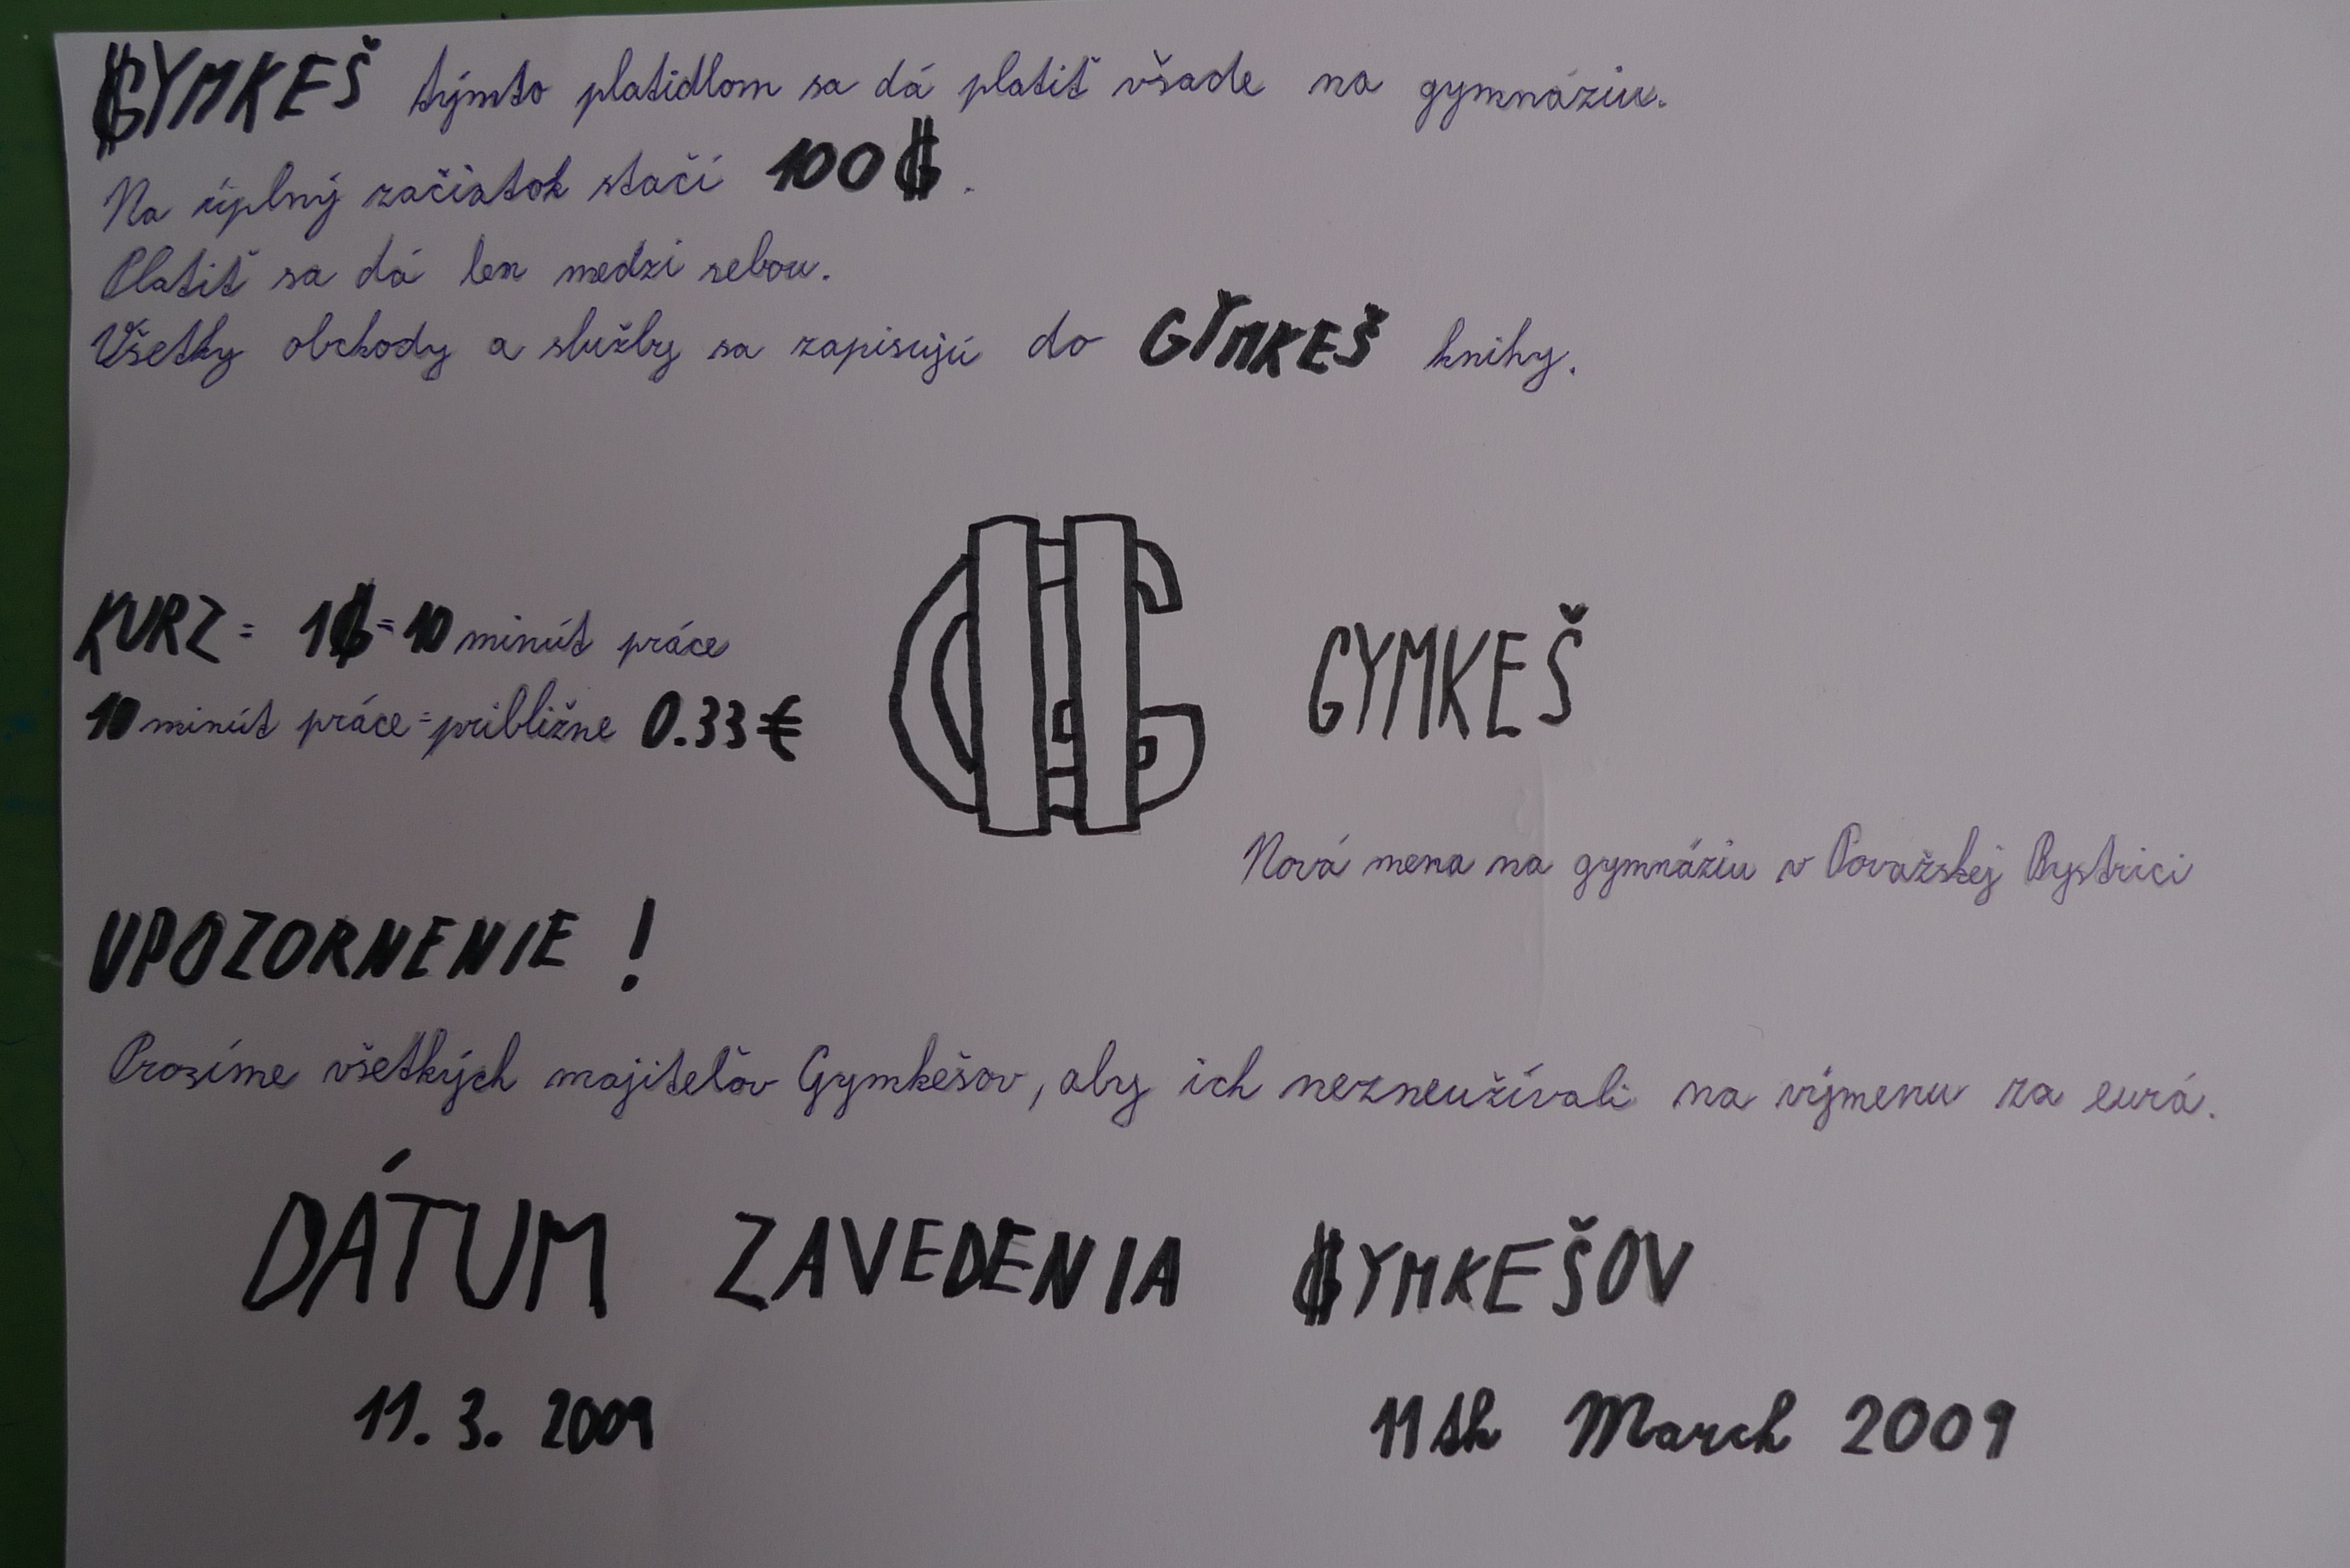 GYMKEŠ týmto platidlom sa dá platiť všade na gymnáziu.
Na úplný začiatok stačí 100 G.
Platiť sa dá len medzi sebou.
Všetky obchody a služby sa zapisujú do GYMKEŠ knihy.
KURZ = 1G = 10 minút práce
10 minút práce = približne 0.33 €
G GYMKEŠ
Nová mena na gymnáziu v Považskej Bystrici
UPOZORNENIE !
Prosíme všetkých majiteľov Gymkešov, aby ich nezneužívali na výmenu za eurá.
DÁTUM ZAVEDENIA GYMKEŠOV
11. 3. 2009 11th March 2009